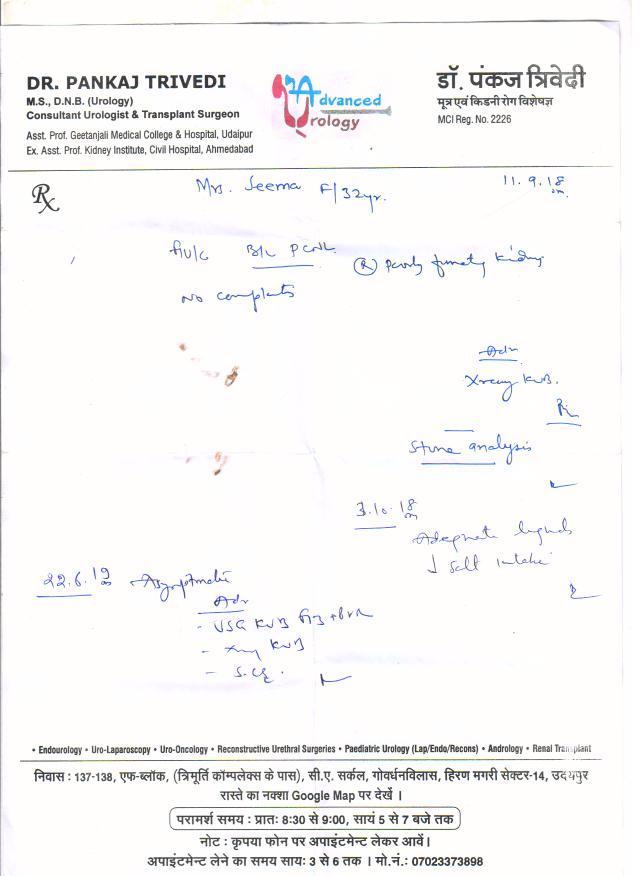 DR. PANKAJ TRIVEDI
M.S., D.N.B. (Urology)
Consultant Urologist & Transplant Surgeon
Asst. Prof. Geetanjali Medical College & Hospital, Udaipur
Ex. Asst. Prof. Kidney Institute, Civil Hospital, Ahmedabad
Advanced
Urology
डॉ. पंकज त्रिवेदी
मूत्र एवं किडनी रोग विशेषज्ञ
MCI Reg. No. 2226
Rx
Mrs. Seema F/32yr.
11.9.18
B/L PCNL
(R) Poorly
No complaints
Adv
Xray KUB.
Stone analysis
3.10.18
Adequate liquids
↓ salt intake
22.6.19 Asymptomatic
Adv
- USG KUB
- Xray KUB
- S.
• Endourology • Uro-Laparoscopy • Uro-Oncology • Reconstructive Urethral Surgeries • Paediatric Urology (Lap/Endo/Recons) • Andrology • Renal Transplant
निवास : 137-138, एफ-ब्लॉक, (त्रिमूर्ति कॉम्पलेक्स के पास), सी.ए. सर्कल, गोवर्धनविलास, हिरण मगरी सेक्टर-14, उदयपुर
रास्ते का नक्शा Google Map पर देखें ।
परामर्श समय : प्रातः 8:30 से 9:00, सायं 5 से 7 बजे तक
नोट : कृपया फोन पर अपाइंटमेन्ट लेकर आवें।
अपाइंटमेन्ट लेने का समय सायः 3 से 6 तक । मो.नं.: 07023373898